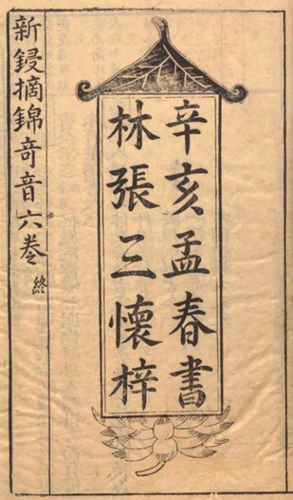 辛亥孟春書
林張三懷梓
新鋟摘錦奇音六卷終